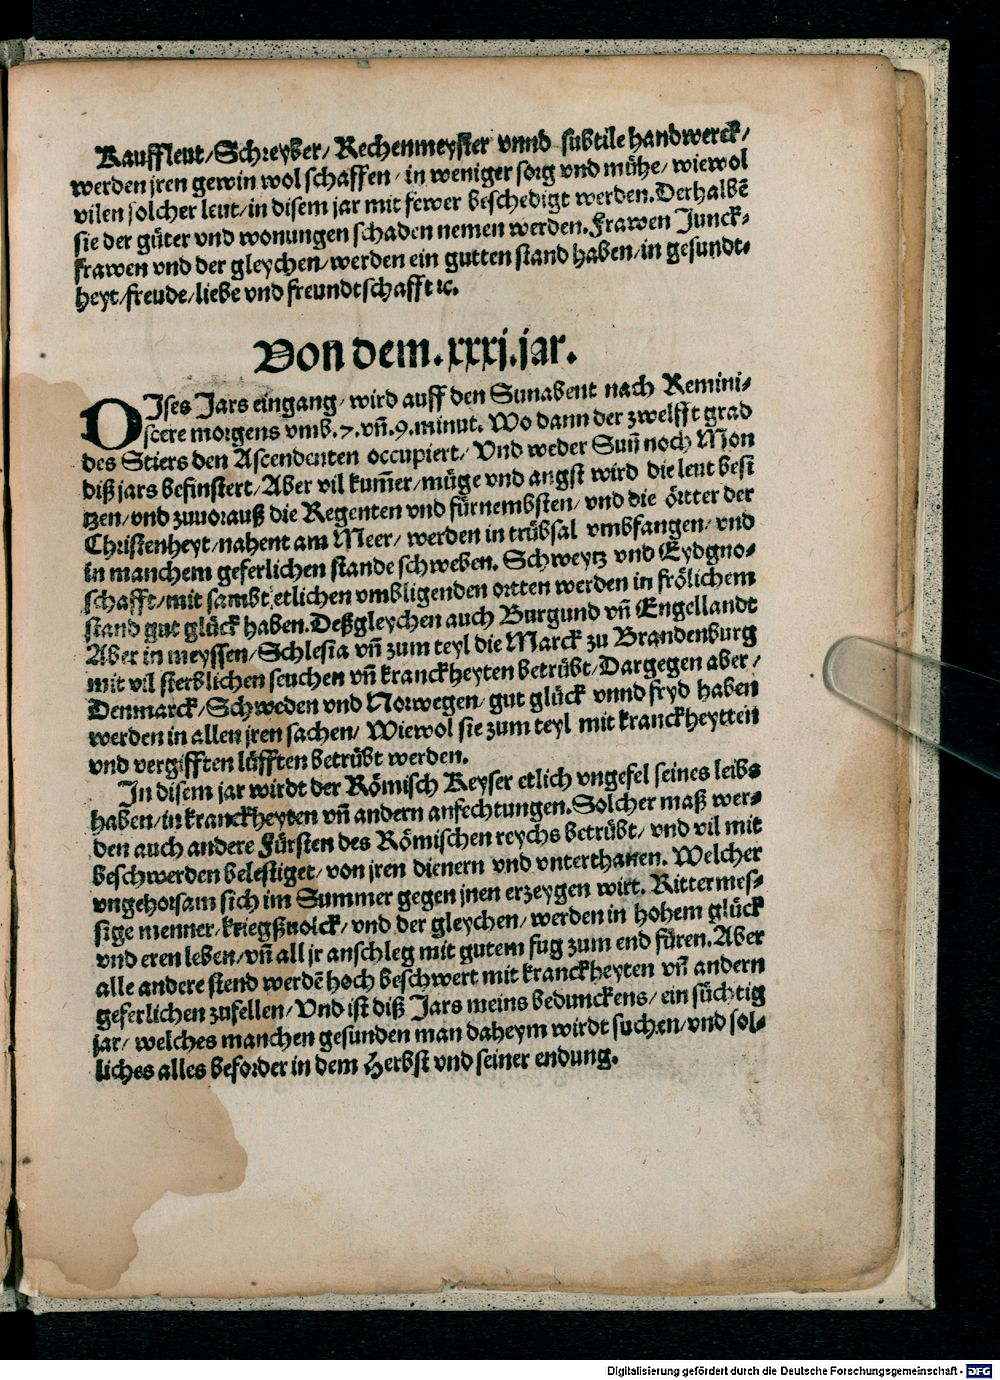 Kauffleut/Schreyber/ Rechenmeyster vnnd subtile handwerck/
werden jren gewin wol schaffen/ in weniger sorg vnd mühe/ wiewol
vilen solcher leut/in disem jar mit fewer beschedigt werden. Derhalbẽ
sie der güter vnd wonungen schaden nemen werden. Frawen Junck⸗
frawen vnd der gleychen/werden ein gutten stand haben/in gesundt⸗
heyt/freude/liebe vnd freundtschafft ꝛc.
Von dem .xxxj. jar.
DIses Jars eingang/ wird auff den Sunabent nach Remini⸗
scere morgens vmb .7. vñ .9. minut. Wo dann der zwelfft grad
des Stiers den Ascendenten occupiert/ Vnd weder Suñ noch Mon
diß jars befinstert/Aber vil kum̃er/müge vnd angst wird die leut besi
tzen/vnd zuuorauß die Regenten vnd fürnembsten/ vnd die örtter der
Christenheyt/nahent am Meer/ werden in trübsal vmbfangen/ vnd
in manchem geferlichen stande schweben. Schweytz vnd Eydgno⸗
schafft/mit sambt etlichen vmbligenden ortten werden in frölichem
stand gut glück haben. Deßgleychen auch Burgund vñ Engellandt
Aber in meyssen/Schlesia vñ zum teyl die Marck zu Brandenburg
mit vil sterblichen seuchen vñ kranckheyten betrübt/Dargegen aber/
Denmarck/Schweden vnd Norwegen/ gut glück vnnd fryd haben
werden in allen jren sachen/ Wiewol sie zum teyl mit kranckheytten
vnd vergifften lüfften betrübt werden.
In disem jar wirdt der Römisch Keyser etlich vngefel seines leibs
haben/in kranckheyten vñ andern anfechtungen. Solcher maß wer⸗
den auch andere Fürsten des Römischen reychs betrübt/ vnd vil mit
beschwerden belestiget/von jren dienern vnd vnterthanen. Welcher
vngehorsam sich im Summer gegen jnen erzeygen wirt. Rittermes⸗
sige menner/kriegßuolck/vnd der gleychen/werden in hohem glück
vnd eren leben/vñ all jr anschleg mit gutem fug zum end füren. Aber
alle andere stend werdẽ hoch beschwert mit kranckheyten vñ andern
geferlichen zufellen/Vnd ist diß Jars meins bedunckens/ ein süchtig
jar/ welches manchen gesunden man daheym wirdt suchen/vnd sol⸗
liches alles beforder in dem Herbst vnd seiner endung.
Digitalisierung gefördert durch die Deutsche Forschungsgemeinschaft - DFG